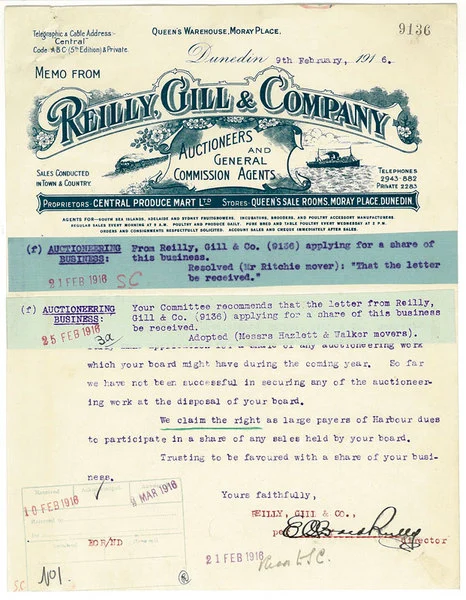 Telegraphic & Cable Address:-
"Central"
Code A B C (5th Edition) & Private.
QUEEN'S WAREHOUSE, MORAY PLACE.
9136
Dunedin 9th February, 1916.
MEMO FROM
REILLY, GILL & COMPANY
AUCTIONEERS
AND
GENERAL
COMMISSION AGENTS
SALES CONDUCTED
IN TOWN & COUNTRY.
TELEPHONES
2943-882
PRIVATE 2283
PROPRIETORS· CENTRAL PRODUCE MART LTD STORES· QUEEN'S SALE ROOMS, MORAY PLACE, DUNEDIN.
AGENTS FOR—SOUTH SEA ISLANDS, ADELAIDE AND SYDNEY FRUITGROWERS. INCUBATORS, BROODERS, AND POULTRY ACCESSORY MANUFACTURERS.
REGULAR SALES EVERY MORNING AT 9 A.M. POULTRY AND PRODUCE DAILY. PURE BRED AND TABLE POULTRY EVERY WEDNESDAY AT 2 P.M.
ORDERS AND CONSIGNMENTS RESPECTFULLY SOLICITED. ACCOUNT SALES AND CHEQUE IMMEDIATELY AFTER SALES.
(f) AUCTIONEERING BUSINESS: From Reilly, Gill & Co. (9136) applying for a share of
this business.
Resolved (Mr Ritchie mover): "That the letter
be received."
21 FEB 1916 SC
(f) AUCTIONEERING BUSINESS: Your Committee recommends that the letter from Reilly,
Gill & Co. (9136) applying for a share of this business
be received.
Adopted (Messrs Hazlett & Walker movers).
25 FEB 1916
3a
which your board might have during the coming year. So far
we have not been successful in securing any of the auctioneer-
ing work at the disposal of your board.
We claim the right as large payers of Harbour dues
to participate in a share of any sales held by your board.
Trusting to be favoured with a share of your busi-
ness.
Yours faithfully,
REILLY, GILL & CO.,
director
Received
10 FEB 1916
MAR 1916
EOR/ND
21 FEB 1916
SC
No1.